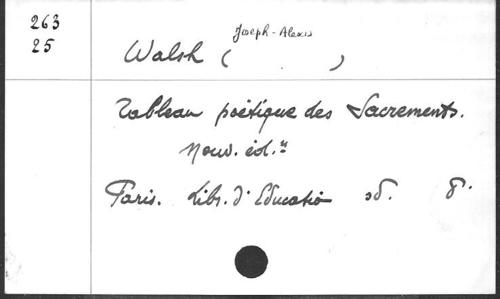 263
25
Joseph-Alexis
Walsh ( )
Tableau poétique des Sacrements.
Nouv. éd.n
Paris. Libr. d'Education sd. 8°.